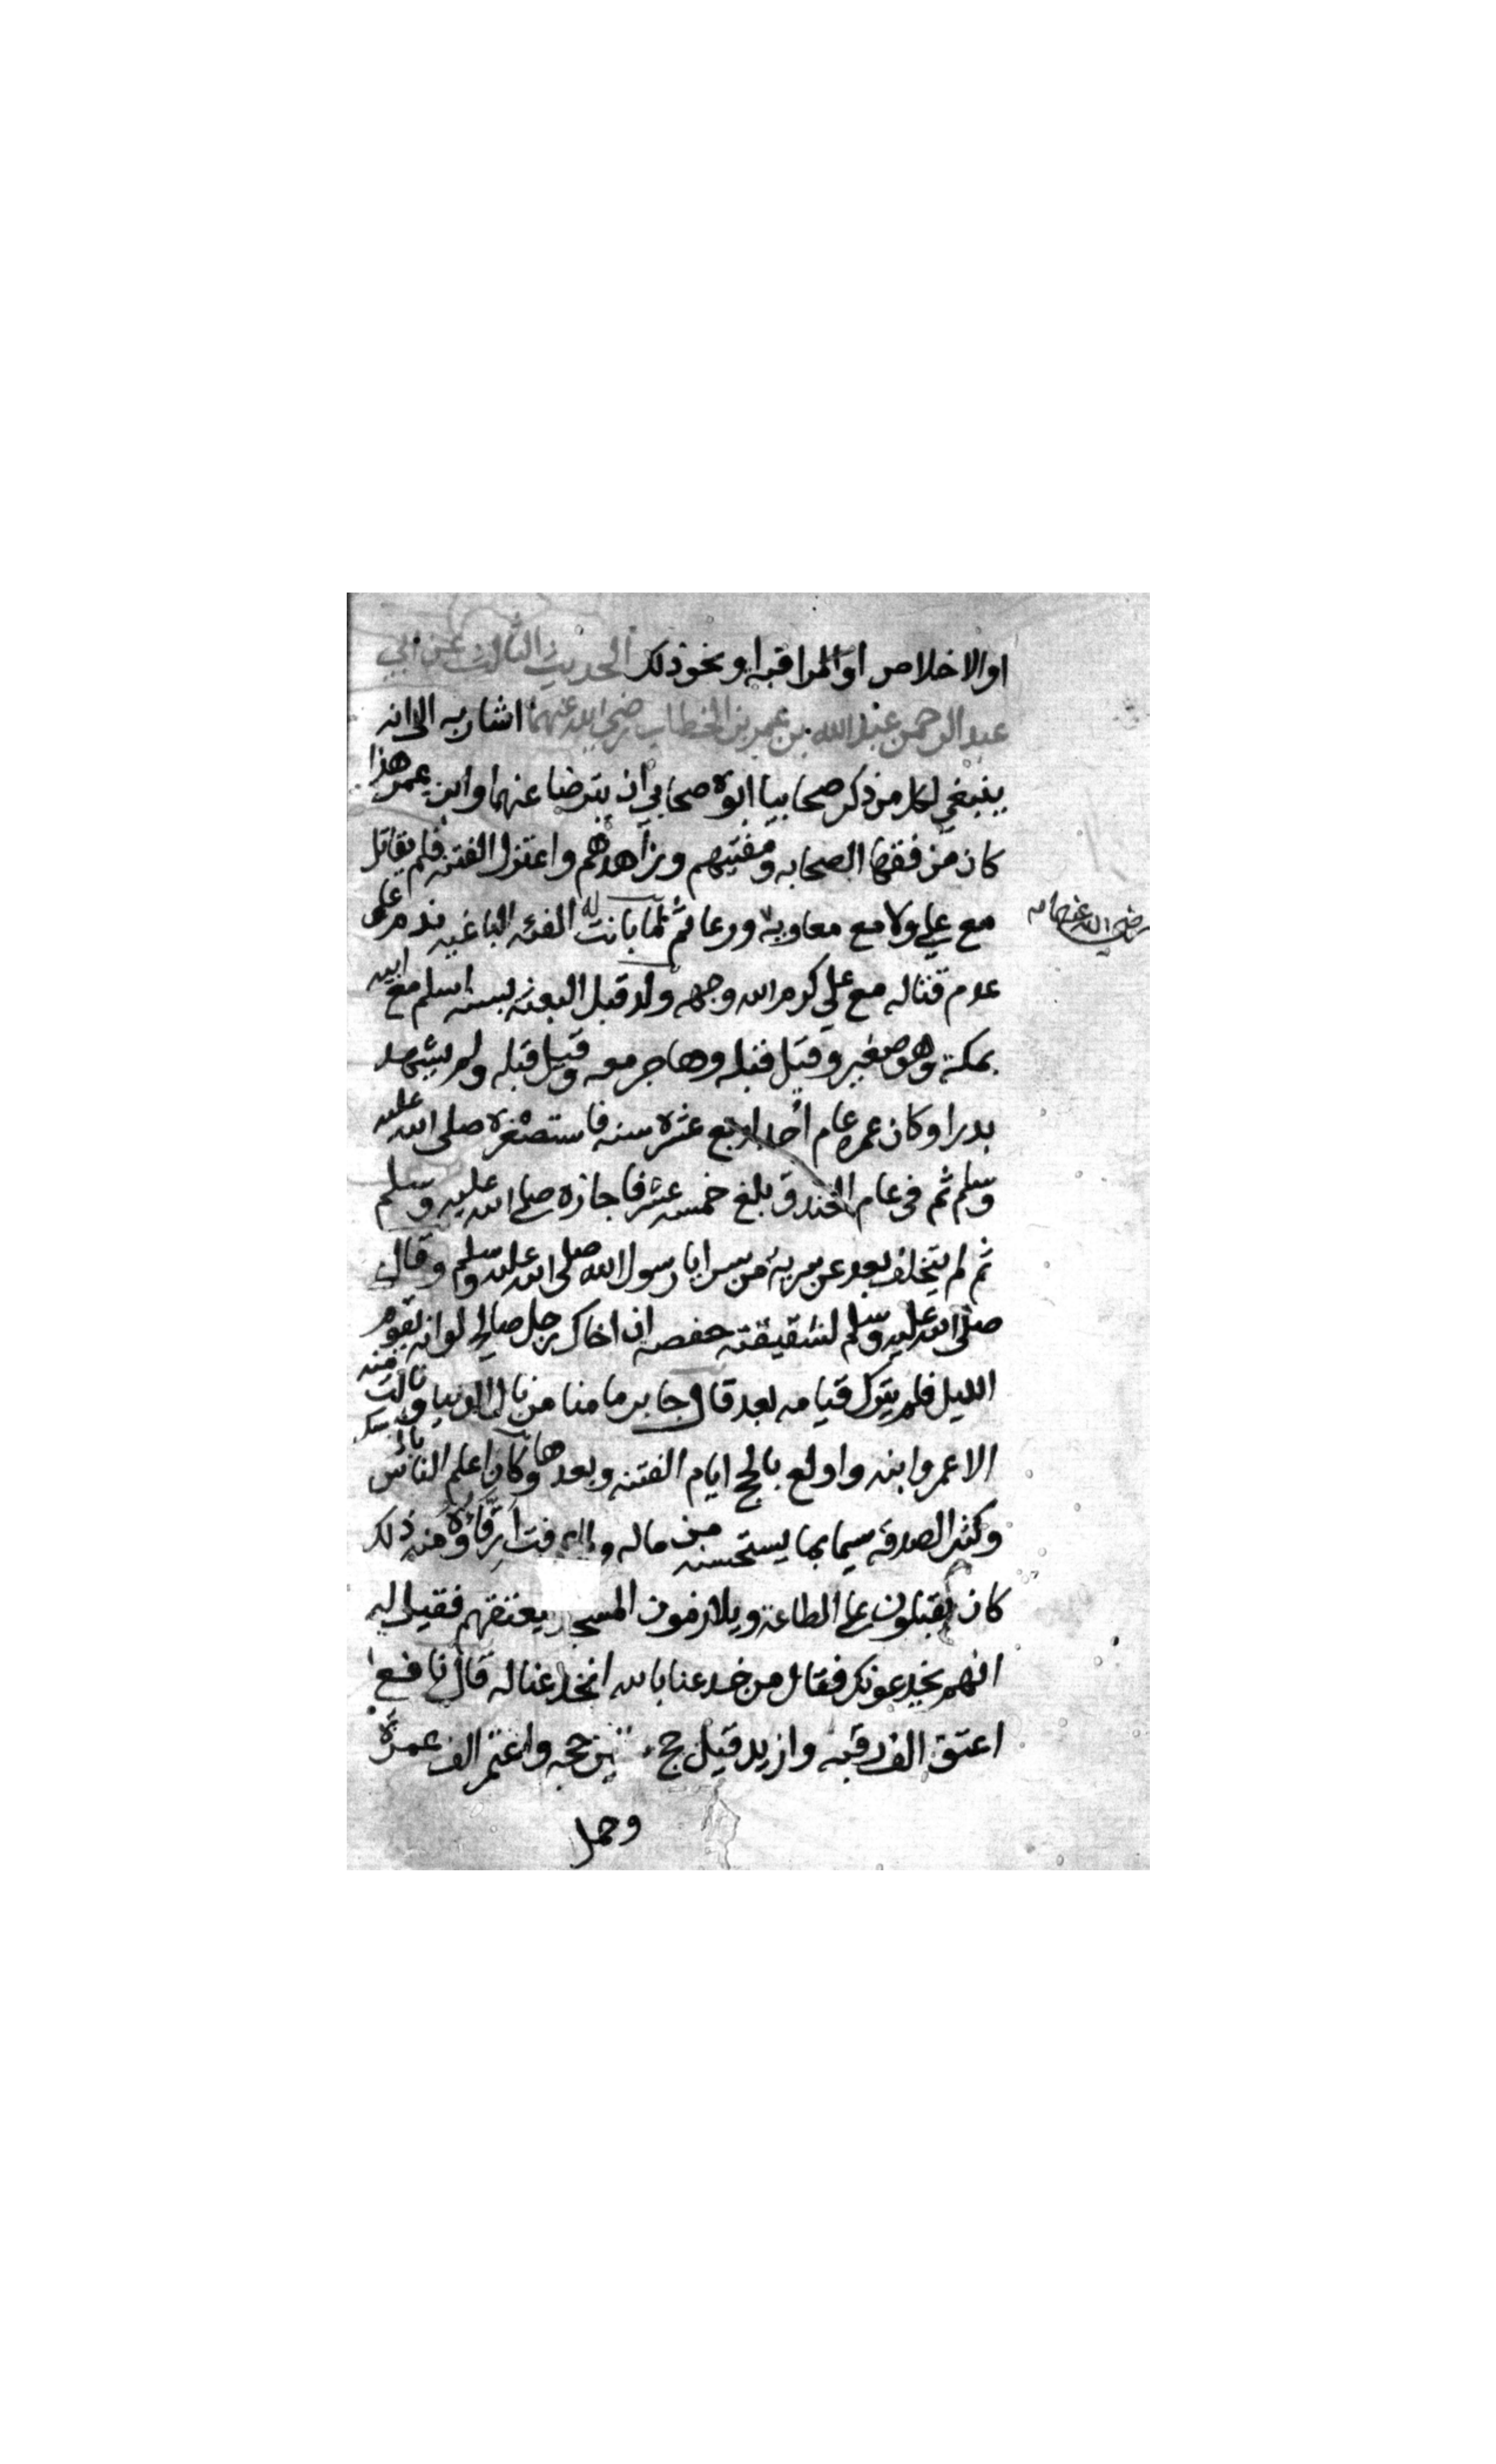 او الاخلاص او المراقبه او نحو ذلك الحديث الثالث عن ابي
عبد الرحمن عبد الله بن عمر بن الخطاب رضي الله عنهما اشار به الى انه
ينبغي لكل من ذكر صحابيا ابوه صحابي ان يترضا عنهما وابن عمر هذا
كان من فقها الصحابه ومفتيهم وزاهدهم واعتزل الفتنه فلم يقاتل
مع علي ولا مع معاويه ورعا ثم لما بانت له الفئه الباغيه ندم على
رضي الله عنهما
عدم قتاله مع علي كرم الله وجهه ولد قبل البعثه بسنه اسلم مع ابيه
بمكة وهو صغير وقيل قبله وهاجر معه وقيل قبله ولم يشهد
بدرا وكان عمره عام أحد اربع عشره سنه فاستصغره صلى الله عليه
وسلم ثم فى عام الخندق بلغ خمسه عشر فاجازه صلى الله عليه وسلم
ثم لم يتخلف بعد عن سرية من سرايا رسول الله صلى الله عليه وسلم وقال
صلى الله عليه وسلم لشقيقته حفصه ان اخاك رجل صالح لو انه يقوم
الليل فلم يترك قيامه بعد قال جابر ما منا من نال الدنيا ونالت منه
الا عمر وابنه واولع بالحج ايام الفتنه وبعدها وكان اعلم الناس
وكثر الصدقه سيما بما يستحسنه من ماله فت ارقاؤه منه ذلك
كان يقبلون على الطاعة ويلازمون المسجد يعتقهم فقيل له
انهم يخدعونك فقال من خدعنا بالله انخدعنا له قال نافع
اعتق الف رقبه وازيد قيل حج حجه واعتمر الف عمرة
وحمل